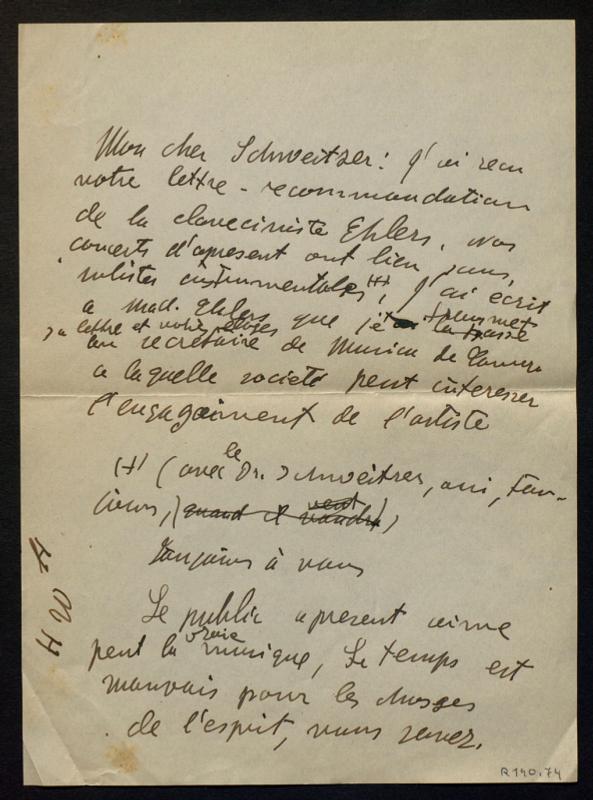 Mon cher Schweitzer: J'ai recu
votre lettre - recommandation
de la claveciniste Ehlers, nos
concerts d'apresent ont lieu sans
solistes instrumentales (+), J'ai ecrit
a mad. Ehlers que je transmets
sa lettre et votre eloges la passe
au secretaire de Musica de Camera
a laquelle societé peut interesser
l'engagaiment de l'artiste
(+) (avec le Dr. Schweitzer, oui, tou-
jours,) (quand il veut voudra)
Toujours à vous
Le public apresent aime
peut la vraie musique, Le temps est
mauvais pour les choses
de l'esprit, vous savez.
R 140.74